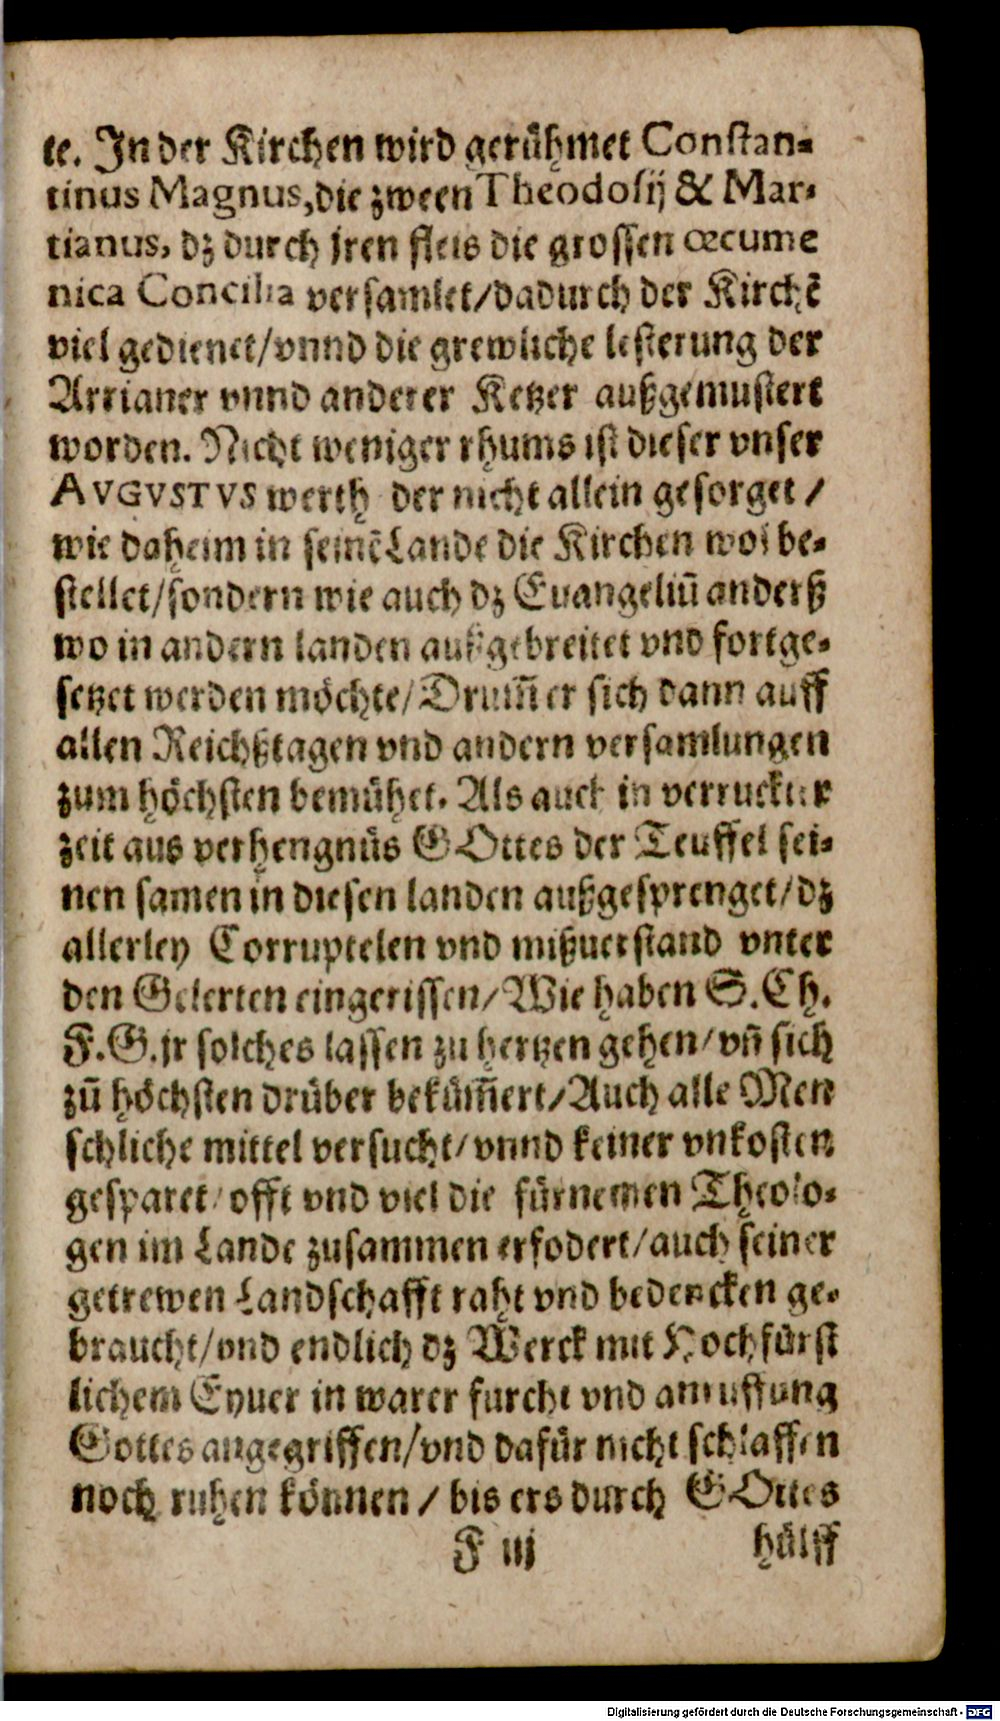 te. In der Kirchen wird gerühmet Constan-
tinus Magnus, die zween Theodosij & Mar-
tianus, dz durch jren fleis die grossen œcume
nica Concilia versamlet/dadurch der Kirchẽ
viel gedienet/vnnd die grewliche lesterung der
Arrianer vnnd anderer Ketzer außgemustert
worden. Nicht weniger rhums ist dieser vnser
AVGVSTVS werth der nicht allein gesorget /
wie daheim in seinẽ Lande die Kirchen wol be-
stellet/sondern wie auch dz Euangeliũ anderß
wo in andern landen außgebreitet vnd fortge-
setzet werden möchte/Drum̃ er sich dann auff
allen Reichßtagen vnd andern versamlungen
zum höchsten bemühet. Als auch in verruckter
zeit aus verhengnüs GOttes der Teuffel sei-
nen samen in diesen landen außgesprenget/dz
allerley Corruptelen vnd mißuerstand vnter
den Gelerten eingerissen/Wie haben S.Ch.
F.G.jr solches lassen zu hertzen gehen/vñ sich
zũ höchsten drüber beküm̃ert/Auch alle Men
schliche mittel versucht/vnnd keiner vnkosten
gesparet/offt vnd viel die fürnemen Theolo-
gen im Lande zusammen erfodert/auch seiner
getrewen Landschafft raht vnd bedencken ge-
braucht/vnd endlich dz Werck mit Hochfürst
lichem Eyuer in warer furcht vnd anruffung
Gottes angegriffen/vnd dafür nicht schlaffen
noch ruhen können / bis ers durch GOttes
F iij hülff
Digitalisierung gefördert durch die Deutsche Forschungsgemeinschaft - DFG